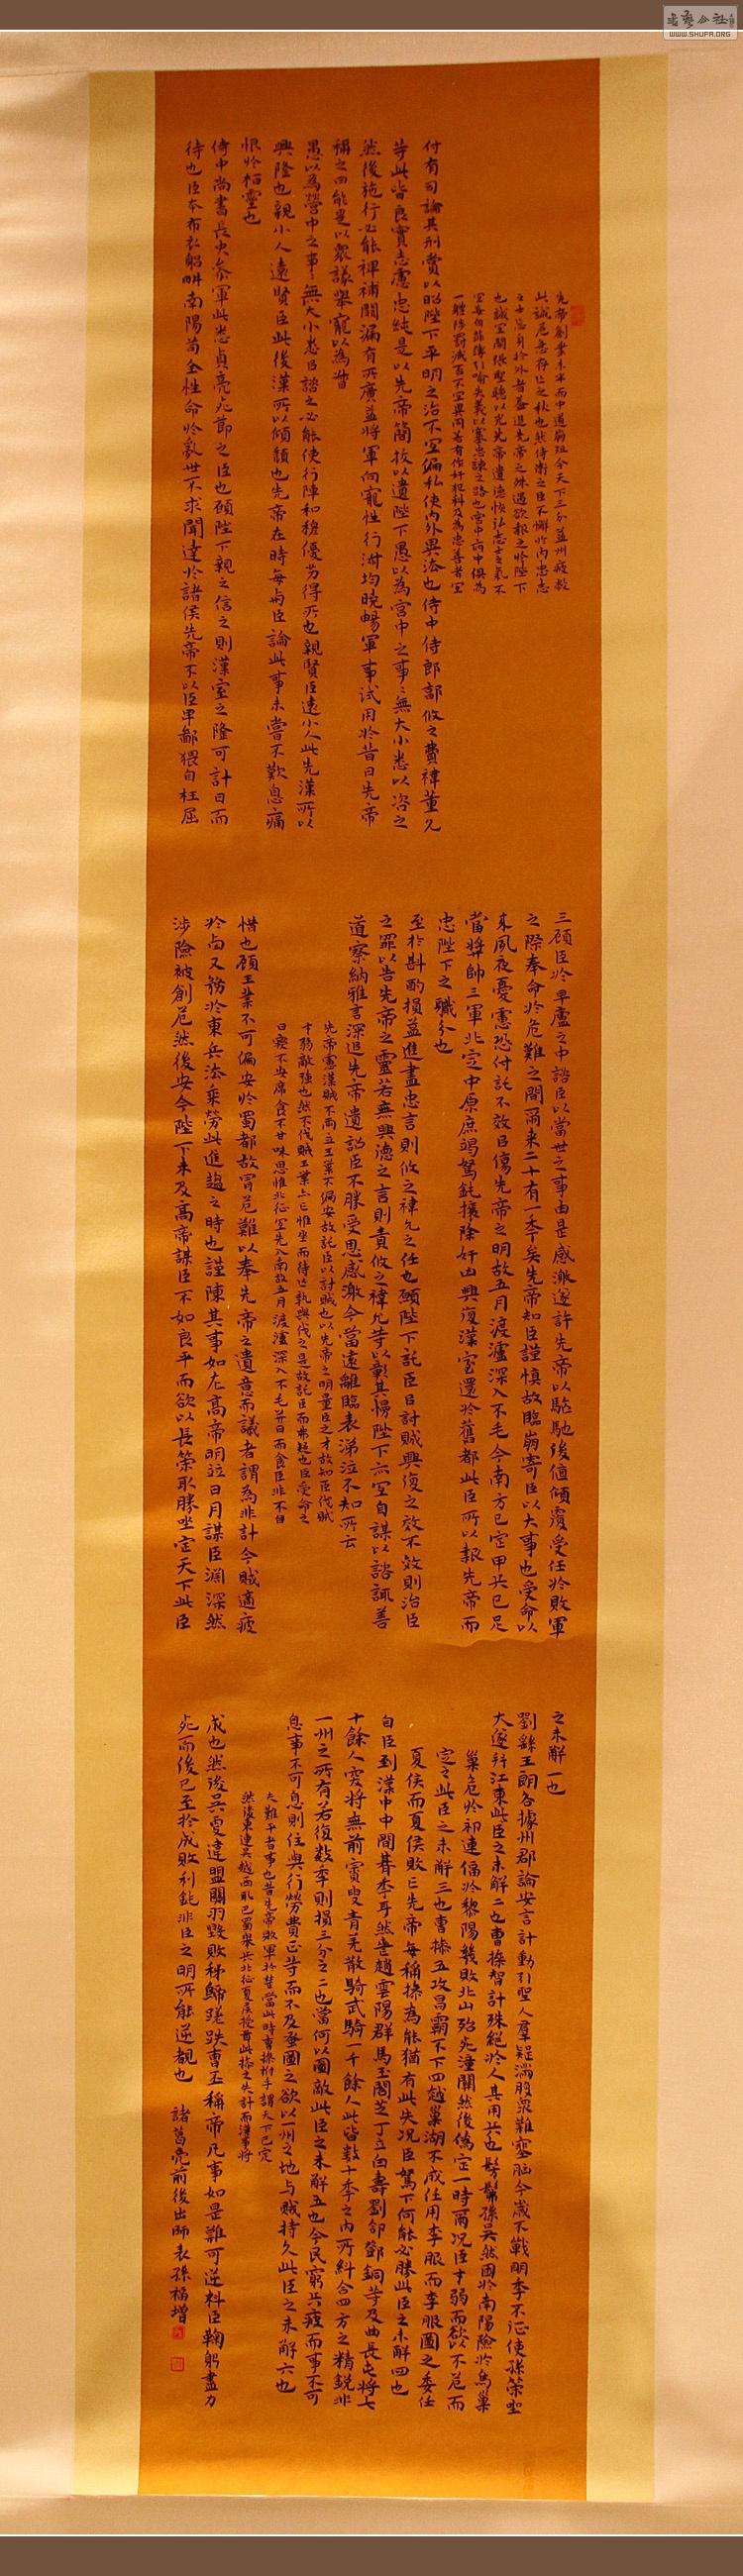 先帝創業未半而中道崩殂今天下三分益州疲敝
此誠危急存亡之秋也然侍衛之臣不懈於內忠志
之士忘身於外者蓋追先帝之殊遇欲報之於陛下
也誠宜開張聖聽以光先帝遺德恢弘志士之氣不
宜妄自菲薄引喻失義以塞忠諫之路也宮中府中俱為
一體陟罰臧否不宜異同若有作奸犯科及為忠善者宜
付有司論其刑賞以昭陛下平明之治不宜偏私使內外異法也侍中侍郎郭攸之費禕董允
等此皆良實志慮忠純是以先帝簡拔以遺陛下愚以為宮中之事々無大小悉以咨之
然後施行必能裨補闕漏有所廣益將軍向寵性行淑均曉暢軍事試用於昔日先帝
稱之曰能是以衆議舉寵以為督
愚以為營中之事々無大小悉以諮之必能使行陣和穆優劣得所也親賢臣遠小人此先漢所以
興隆也親小人遠賢臣此後漢所以傾頹也先帝在時每與臣論此事未嘗不歎息痛
恨於桓靈也
侍中尚書長史參軍此悉貞亮死節之臣也願陛下親之信之則漢室之隆可計日而
待也臣本布衣躬耕南陽苟全性命於亂世不求聞達於諸侯先帝不以臣卑鄙猥自枉屈
三顧臣於草廬之中諮臣以當世之事由是感激遂許先帝以驅馳後值傾覆受任於敗軍
之際奉命於危難之間爾來二十有一年矣先帝知臣謹慎故臨崩寄臣以大事也受命以
來夙夜憂慮恐付託不效以傷先帝之明故五月渡瀘深入不毛今南方已定甲兵已足
當獎帥三軍北定中原庶竭駑鈍攘除奸凶興復漢室還於舊都此臣所以報先帝而
忠陛下之職分也
至於斟酌損益進盡忠言則攸之禕允之任也願陛下託臣以討賊興復之效不效則治臣
之罪以告先帝之靈若無興德之言則責攸之禕允等以彰其慢陛下亦宜自謀以諮諏善
道察納雅言深追先帝遺詔臣不勝受恩感激今當遠離臨表涕泣不知所云
先帝慮漢賊不兩立王業不偏安故託臣以討賊也以先帝之明量臣之才故知臣伐賊
才弱敵強也然不伐賊王業亦亡惟坐而待亡孰與伐之是故託臣而弗疑也臣受命之
日寢不安席食不甘味思惟北征宜先入南故五月渡瀘深入不毛并日而食臣非不自
惜也顧王業不可偏安於蜀都故冒危難以奉先帝之遺意而議者謂為非計今賊適疲
於西又務於東兵法乘勞此進趨之時也謹陳其事如左高帝明並日月謀臣淵深然
涉險被創危然後安今陛下未及高帝謀臣不如良平而欲以長策取勝坐定天下此臣
之未解一也
劉繇王朗各據州郡論安言計動引聖人羣疑滿腹衆難塞胸今歲不戰明年不征使孫策坐
大遂并江東此臣之未解二也曹操智計殊絕於人其用兵也髣髴孫吳然困於南陽險於烏巢
危於祁連偪於黎陽幾敗北山殆死潼關然後偽定一時爾況臣才弱而欲以不危而
定之此臣之未解三也曹操五攻昌霸不下四越巢湖不成任用李服而李服圖之委任
夏侯而夏侯敗亡先帝每稱操為能猶有此失況臣駑下何能必勝此臣之未解四也
自臣到漢中中間朞年耳然喪趙雲陽群馬玉閻芝丁立白壽劉郃鄧銅等及曲長屯將七
十餘人突將無前賨叟青羌散騎武騎一千餘人此皆數十年之內所糾合四方之精銳非
一州之所有若復數年則損三分之二也當何以圖敵此臣之未解五也今民窮兵疲而事不可
息事不可息則住與行勞費正等而不及蚤圖之欲以一州之地与賊持久此臣之未解六也
夫難平者事也昔先帝敗軍於楚當此時曹操拊手謂天下已定
然後東連吳越西取巴蜀舉兵北征夏侯授首此操之失計而漢事將
成也然後吳更違盟關羽毀敗秭歸蹉跌曹丕稱帝凡事如是難可逆料臣鞠躬盡力
死而後已至於成敗利鈍非臣之明所能逆覩也 諸葛亮前後出師表孫福增
WWW.SHUFA.ORG